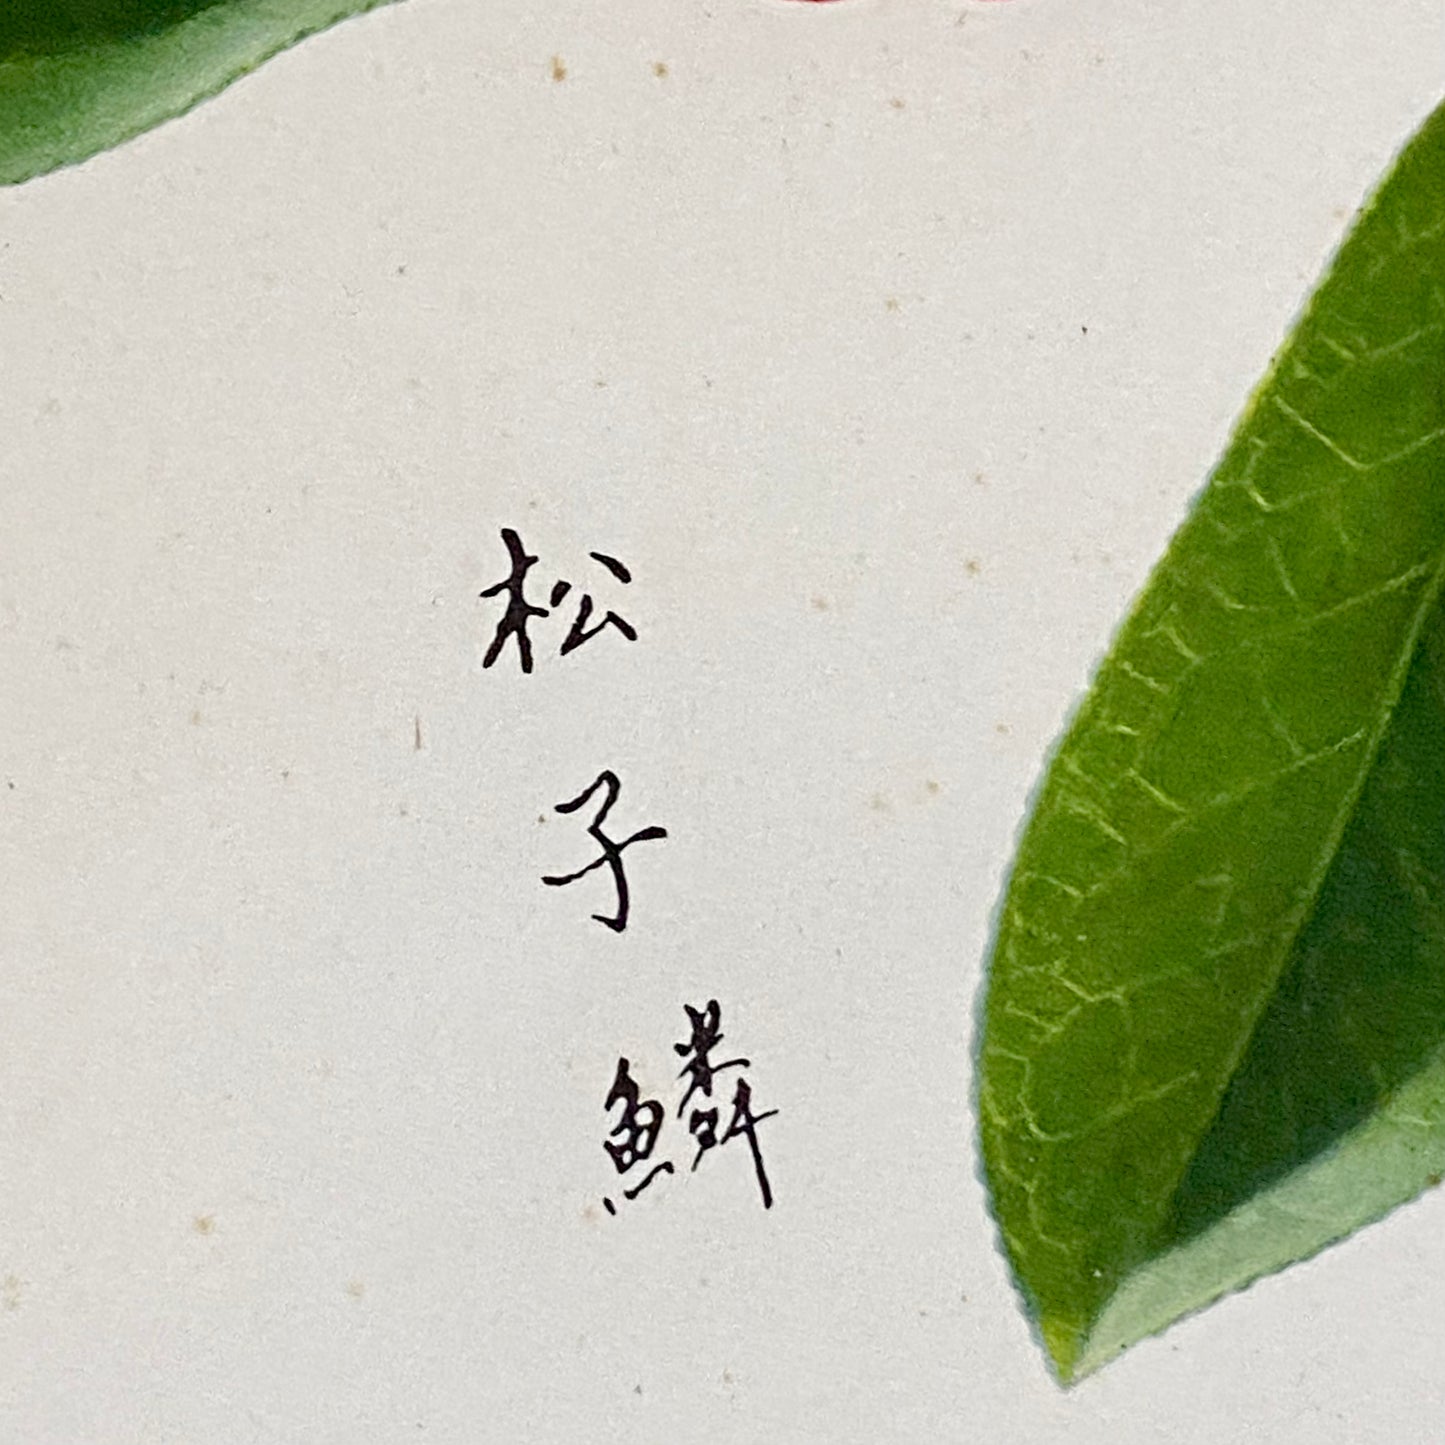 松子鱗